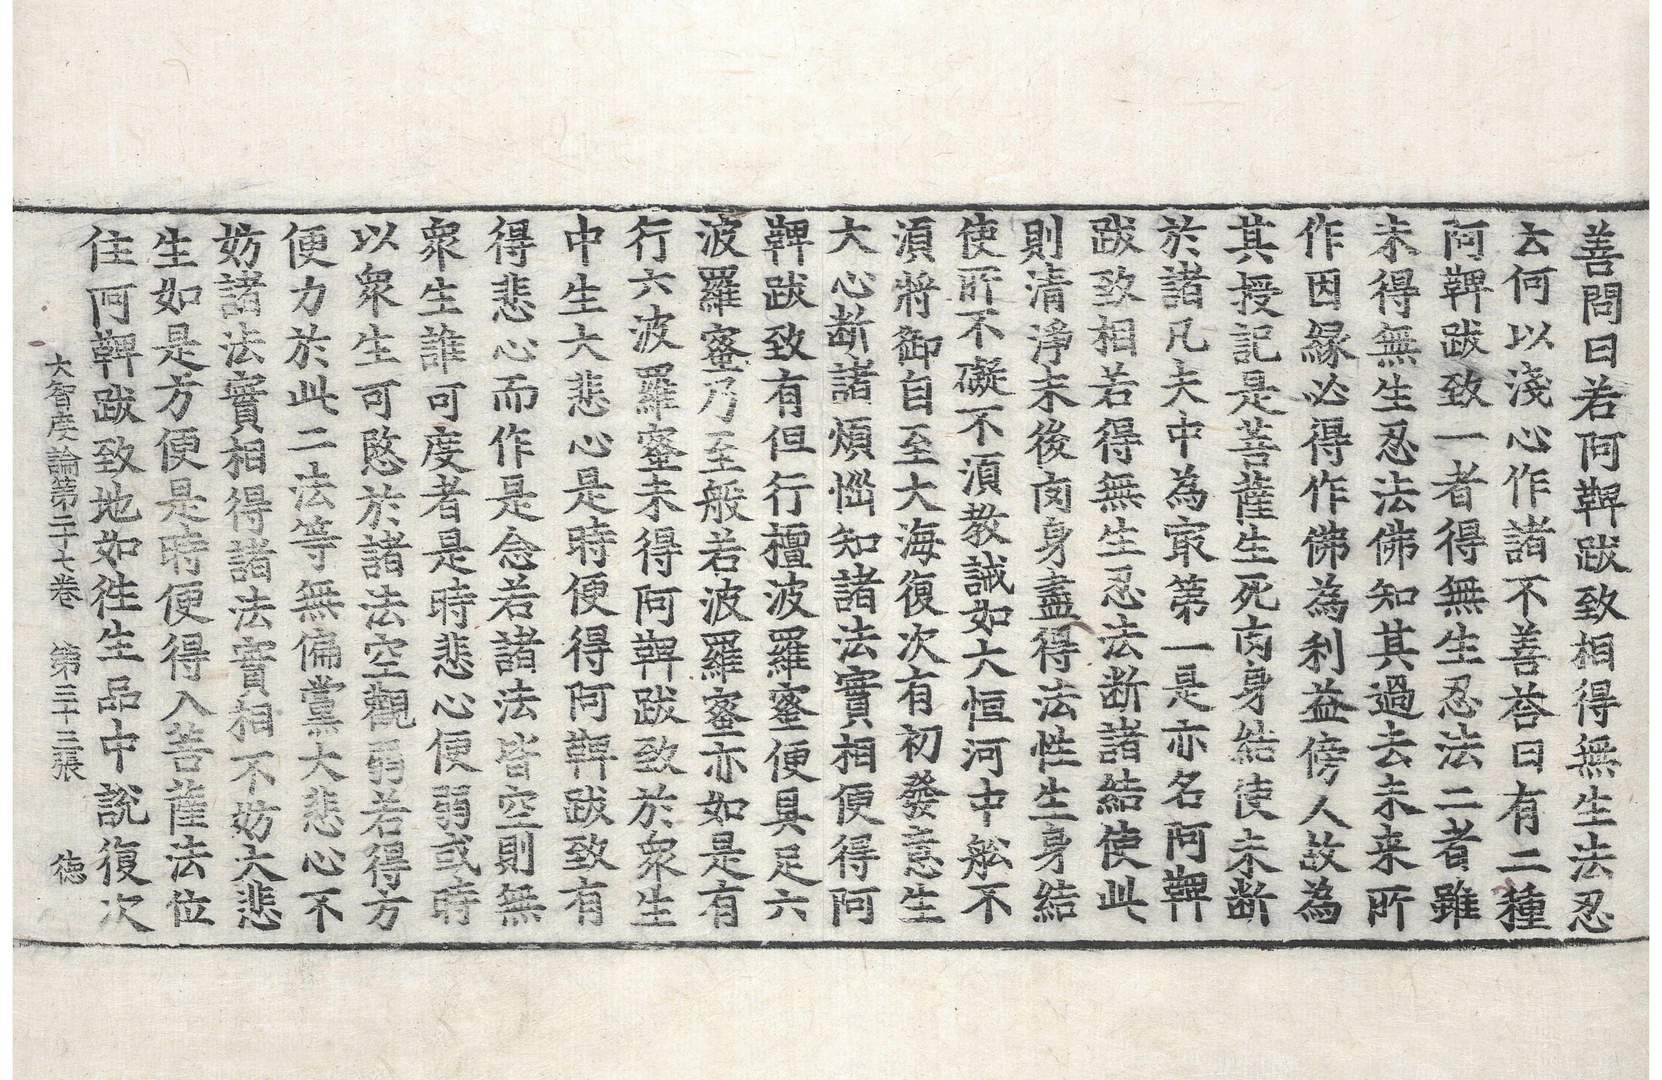 善問曰若阿鞞跋致相得無生法忍
云何以淺心作諸不善荅曰有二種
阿鞞跋致一者得無生忍法二者雖
未得無生忍法佛知其過去未来所
作因緣必得作佛為利益傍人故為
其授記是菩薩生死肉身結使未断
於諸凡夫中為㝡第一是亦名阿鞞
跋致相若得無生忍法断諸結使此
則清淨末後肉身盡得法性生身結
使所不礙不須教誡如大恒河中舩不
須將御自至大海復次有初發意生
大心断諸煩惱知諸法實相便得阿
鞞跋致有但行檀波羅蜜便具足六
波羅蜜乃至般若波羅蜜亦如是有
行六波羅蜜未得阿鞞跋致於衆生
中生大悲心是時便得阿鞞跋致有
得悲心而作是念若諸法皆空則無
衆生誰可度者是時悲心便弱或時
以衆生可愍於諸法空觀弱若得方
便力於此二法等無偏黨大悲心不
妨諸法實相得諸法實相不妨大悲
生如是方便是時便得入菩薩法位
住阿鞞跋致地如徃生品中說復次
大智度論第二十七卷 第三十三張 徳